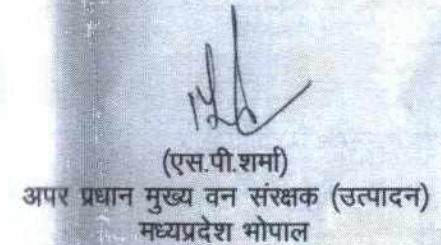 (एस.पी.शर्मा)
अपर प्रधान मुख्य वन संरक्षक (उत्पादन)
मध्यप्रदेश भोपाल